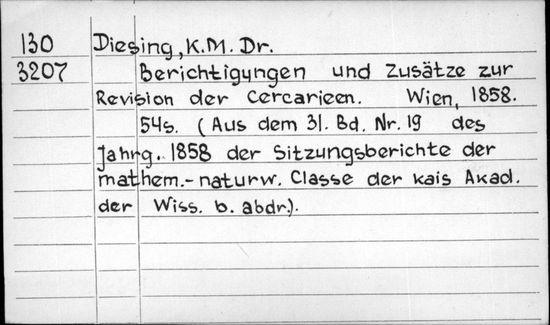 130 Diesing, K.M. Dr.
3207 Berichtigungen und Zusätze zur
Revision der Cercarieen. Wien, 1858.
54s. (Aus dem 31. Bd. Nr. 19 des
Jahrg. 1858 der Sitzungsberichte der
mathem.-naturw. Classe der kais Akad.
der Wiss. b. abdr.).